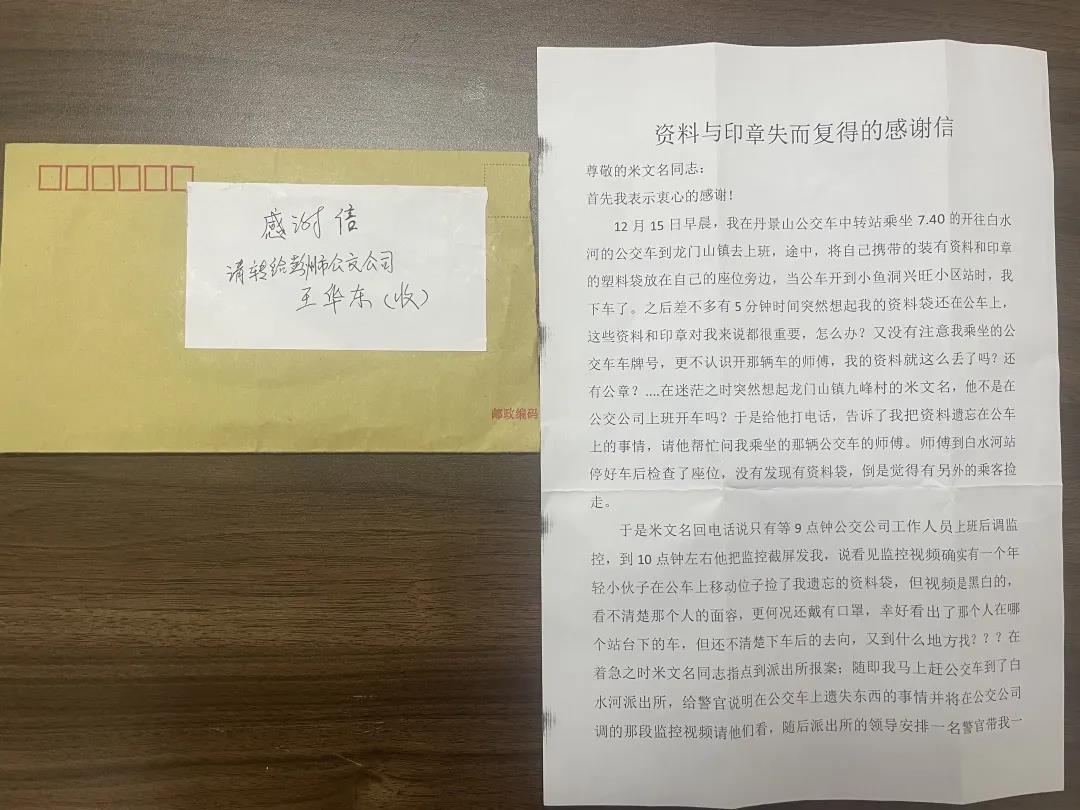 感谢信
请转给彭州市公交公司
王华东（收）
邮政编码
资料与印章失而复得的感谢信
尊敬的米文名同志：
首先我表示衷心的感谢！
12月15日早晨，我在丹景山公交车中转站乘坐7.40的开往白水
河的公交车到龙门山镇去上班，途中，将自己携带的装有资料和印章
的塑料袋放在自己的座位旁边，当公车开到小鱼洞兴旺小区站时，我
下车了。之后差不多有5分钟时间突然想起我的资料袋还在公车上，
这些资料和印章对我来说都很重要，怎么办？又没有注意我乘坐的公
交车车牌号，更不认识开那辆车的师傅，我的资料就这么丢了吗？还
有公章？....在迷茫之时突然想起龙门山镇九峰村的米文名，他不是在
公交公司上班开车吗？于是给他打电话，告诉了我把资料遗忘在公车
上的事情，请他帮忙问我乘坐的那辆公交车的师傅。师傅到白水河站
停好车后检查了座位，没有发现有资料袋，倒是觉得有另外的乘客捡
走。
于是米文名回电话说只有等9点钟公交公司工作人员上班后调监
控，到10点钟左右他把监控截屏发我，说看见监控视频确实有一个年
轻小伙子在公车上移动位子捡了我遗忘的资料袋，但视频是黑白的，
看不清楚那个人的面容，更何况还戴有口罩，幸好看出了那个人在哪
个站台下的车，但还不清楚下车后的去向，又到什么地方找？？？在
着急之时米文名同志指点到派出所报案；随即我马上赶公交车到了白
水河派出所，给警官说明在公交车上遗失东西的事情并将在公交公司
调的那段监控视频请他们看，随后派出所的领导安排一名警官带我一